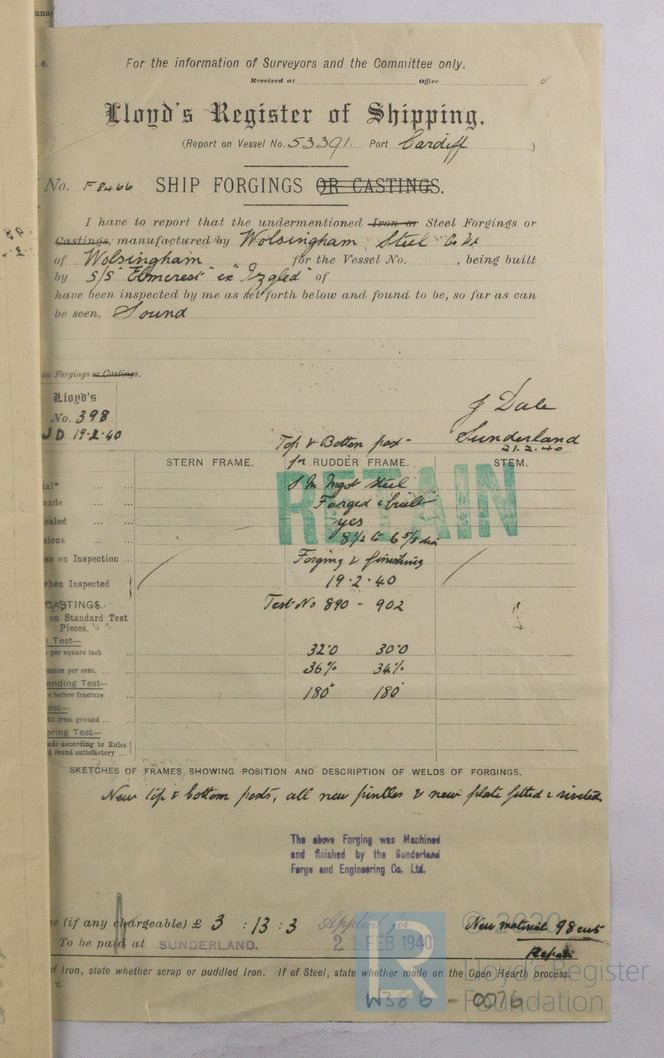 For the information of Surveyors and the Committee only.
Received at Office
Lloyd's Register of Shipping.
(Report on Vessel No. 53391. Port Cardiff )
No. F8466 SHIP FORGINGS OR CASTINGS.
I have to report that the undermentioned Iron or Steel Forgings or
Castings, manufactured by Wolsingham Steel Co Ld
of Wolsingham for the Vessel No. , being built
by S/S "Elmcrest" ex "Izgled" of
have been inspected by me as set forth below and found to be, so far as can
be seen, Sound
on Forgings or Castings.
Lloyd's
No. 398
JD 19.2.40
J Dale
Sunderland
21.2.40
Top & Bottom post
STERN FRAME. for RUDDER FRAME. STEM.
RETAIN
S.M. Ingot Steel
Forged & built
yes
8½ to 6 5/8 dia
on Inspection Forging & finishing
when Inspected 19.2.40
CASTINGS. Test No 890 - 902
on Standard Test
Pieces.
Test—
per square inch 32.0 30.0
per cent. 36% 34%
Bending Test—
before fracture 180° 180°
from ground
Test—
according to Rules
found satisfactory
SKETCHES OF FRAMES, SHOWING POSITION AND DESCRIPTION OF WELDS OF FORGINGS.
New top & bottom posts, all new pintles & new plate fitted & riveted
The above Forging was Machined
and finished by the Sunderland
Forge and Engineering Co. Ltd.
(if any chargeable) £ 3 : 13 : 3 Applied for New material 98 cwts
To be paid at SUNDERLAND. 21 FEB 1940 Repair
of Iron, state whether scrap or puddled Iron. If of Steel, state whether made on the Open Hearth process.
© 2020
Lloyd's Register
Foundation
W386-0076